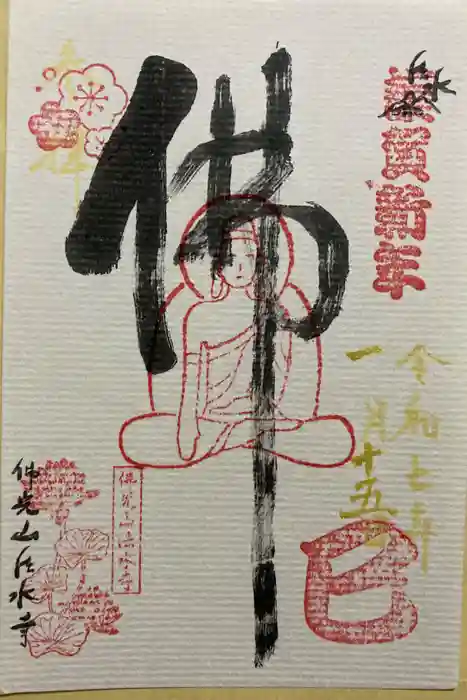 奉拝
佛
法水
恭賀新年
令和七年
一月十五日
巳
佛光山法水寺
佛光山法水寺